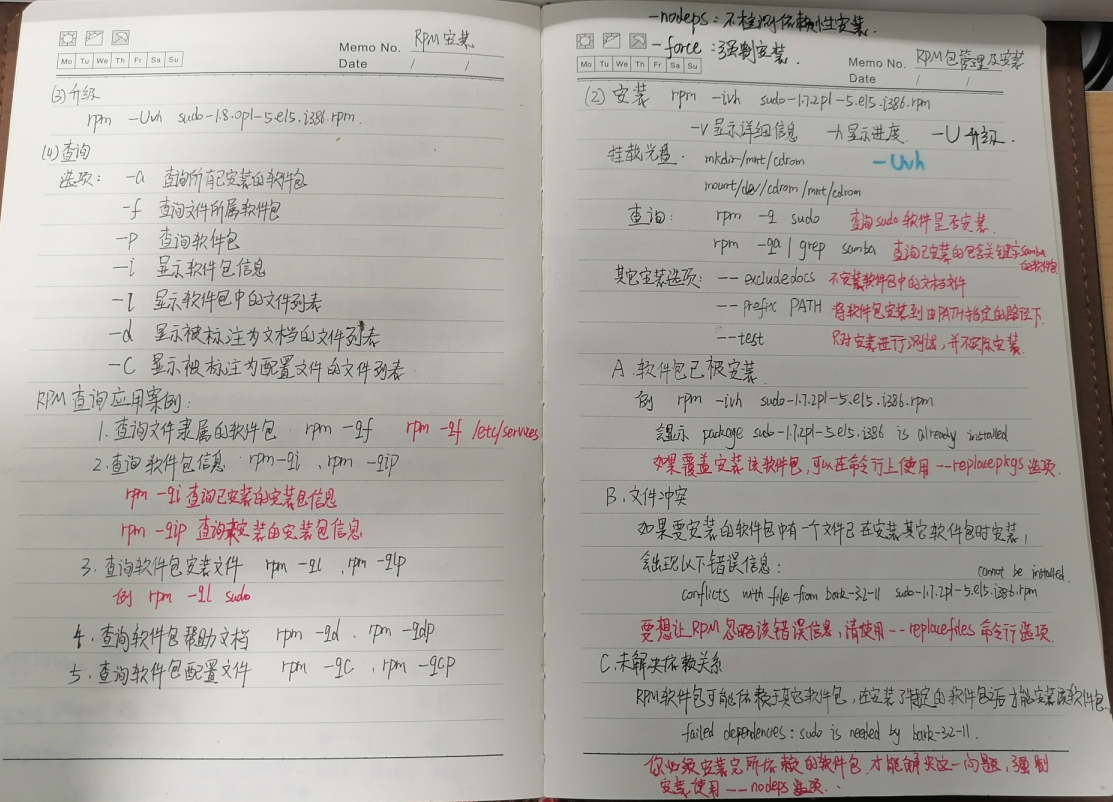 Memo No. RPM安装
Mo Tu We Th Fr Sa Su
Date / /
(3)升级
rpm -Uvh sudo-1.8.0p1-5.el5.i386.rpm.
(4)查询
选项: -a 查询所有已安装的软件包
-f 查询文件所属软件包
-p 查询软件包
-i 显示软件包信息
-l 显示软件包中的文件列表
-d 显示被标注为文档的文件列表
-c 显示被标注为配置文件的文件列表.
RPM查询应用案例:
1.查询文件隶属的软件包. rpm -qf rpm -qf /etc/services
2.查询软件包信息 rpm-qi 、rpm -qip
rpm -qi 查询已安装的安装包信息
rpm -qip 查询未安装的安装包信息
3.查询软件包安装文件 rpm -ql 、rpm -qlp
例 rpm -ql sudo
4.查询软件包帮助文档 rpm -qd 、rpm -qdp
5.查询软件包配置文件 rpm -qc 、rpm -qcp
-nodeps:不检测依赖性安装.
-force:强制安装.
Memo No. RPM包管理及安装
Mo Tu We Th Fr Sa Su
Date / /
(2)安装 rpm -ivh sudo-1.7.2p1-5.el5.i386.rpm
-v 显示详细信息 -h 显示进度. -U 升级.
挂载光盘. mkdir/mnt/cdrom -Uvh
mount/dev/cdrom/mnt/cdrom
查询: rpm -q sudo 查询sudo软件是否安装.
rpm -qa | grep samba 查询已安装的包含关键字samba的软件包
其它安装选项: --excludedocs 不安装软件包中的文档文件
--prefix PATH 将软件包安装到由PATH指定的路径下.
--test 只对安装进行测试,并不实际安装.
A.软件包已被安装
例 rpm -ivh sudo-1.7.2p1-5.el5.i386.rpm
会显示 package sudo-1.7.2p1-5.el5.i386 is already installed
如果覆盖安装该软件包,可以在命令行上使用 --replacepkgs 选项.
B.文件冲突
如果要安装的软件包中有一个文件已在安装其它软件包时安装,
会出现以下错误信息:
cannot be installed.
conflicts with file from bark-32-11 sudo-1.7.2p1-5.el5.i386.rpm
要想让RPM忽略该错误信息,请使用 --replacefiles 命令行选项.
C.未解决依赖关系
RPM软件包可能依赖于其它软件包,在安装了特定的软件包之后才能安装该软件包.
failed dependencies: sudo is needed by bark-32-11.
你必须安装完所依赖的软件包.才能解决这一问题,强制
安装使用 --nodeps 选项.